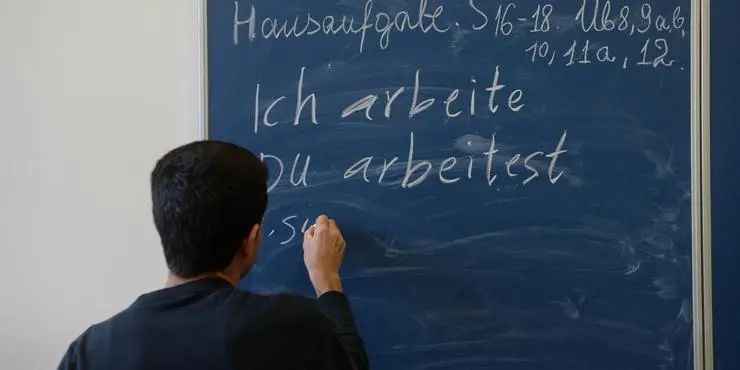 Hausaufgabe. S 16-18. Üb8, 9a,b,
10, 11a, 12.
Ich arbeite
Du arbeitest